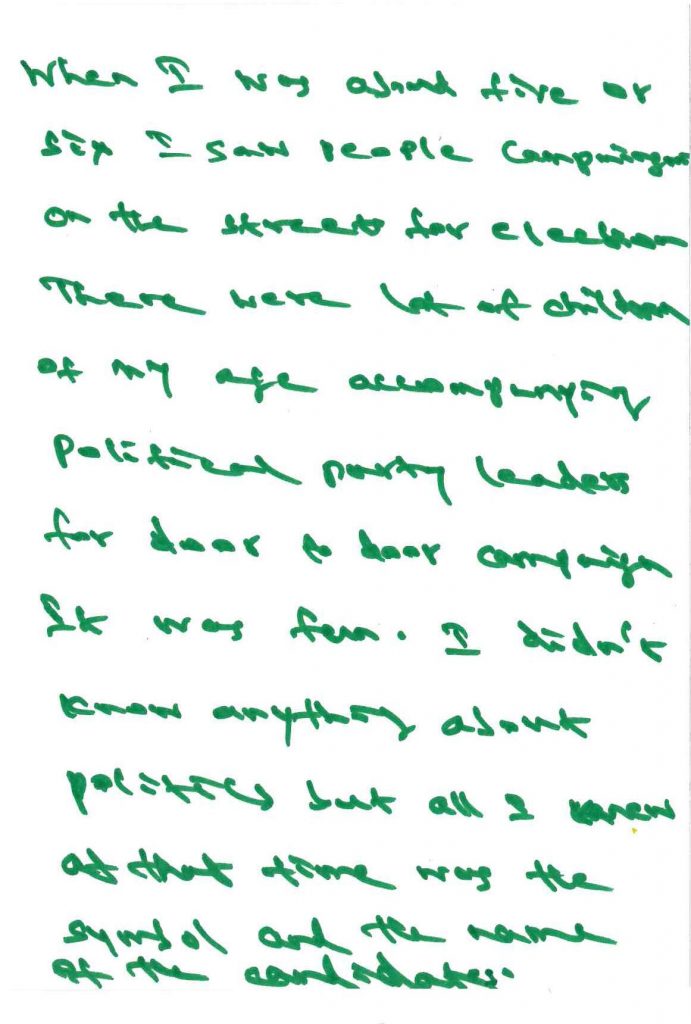 When I was about five or
six I saw people campaign
on the streets for election
There were lot of children
of my age accompanying
political party leaders
for door to door campaign
It was fun. I didn't
know anything about
politics but all I knew
at that time was the
symbol and the name
of the candidates.